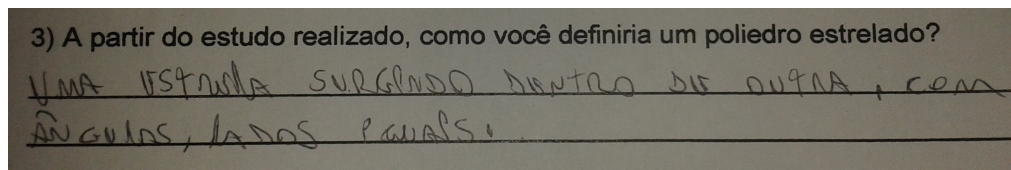 3) A partir do estudo realizado, como você definiria um poliedro estrelado?
UMA ESTRELA SURGINDO DENTRO DE OUTRA, COM
ÂNGULOS, LADOS IGUAIS.